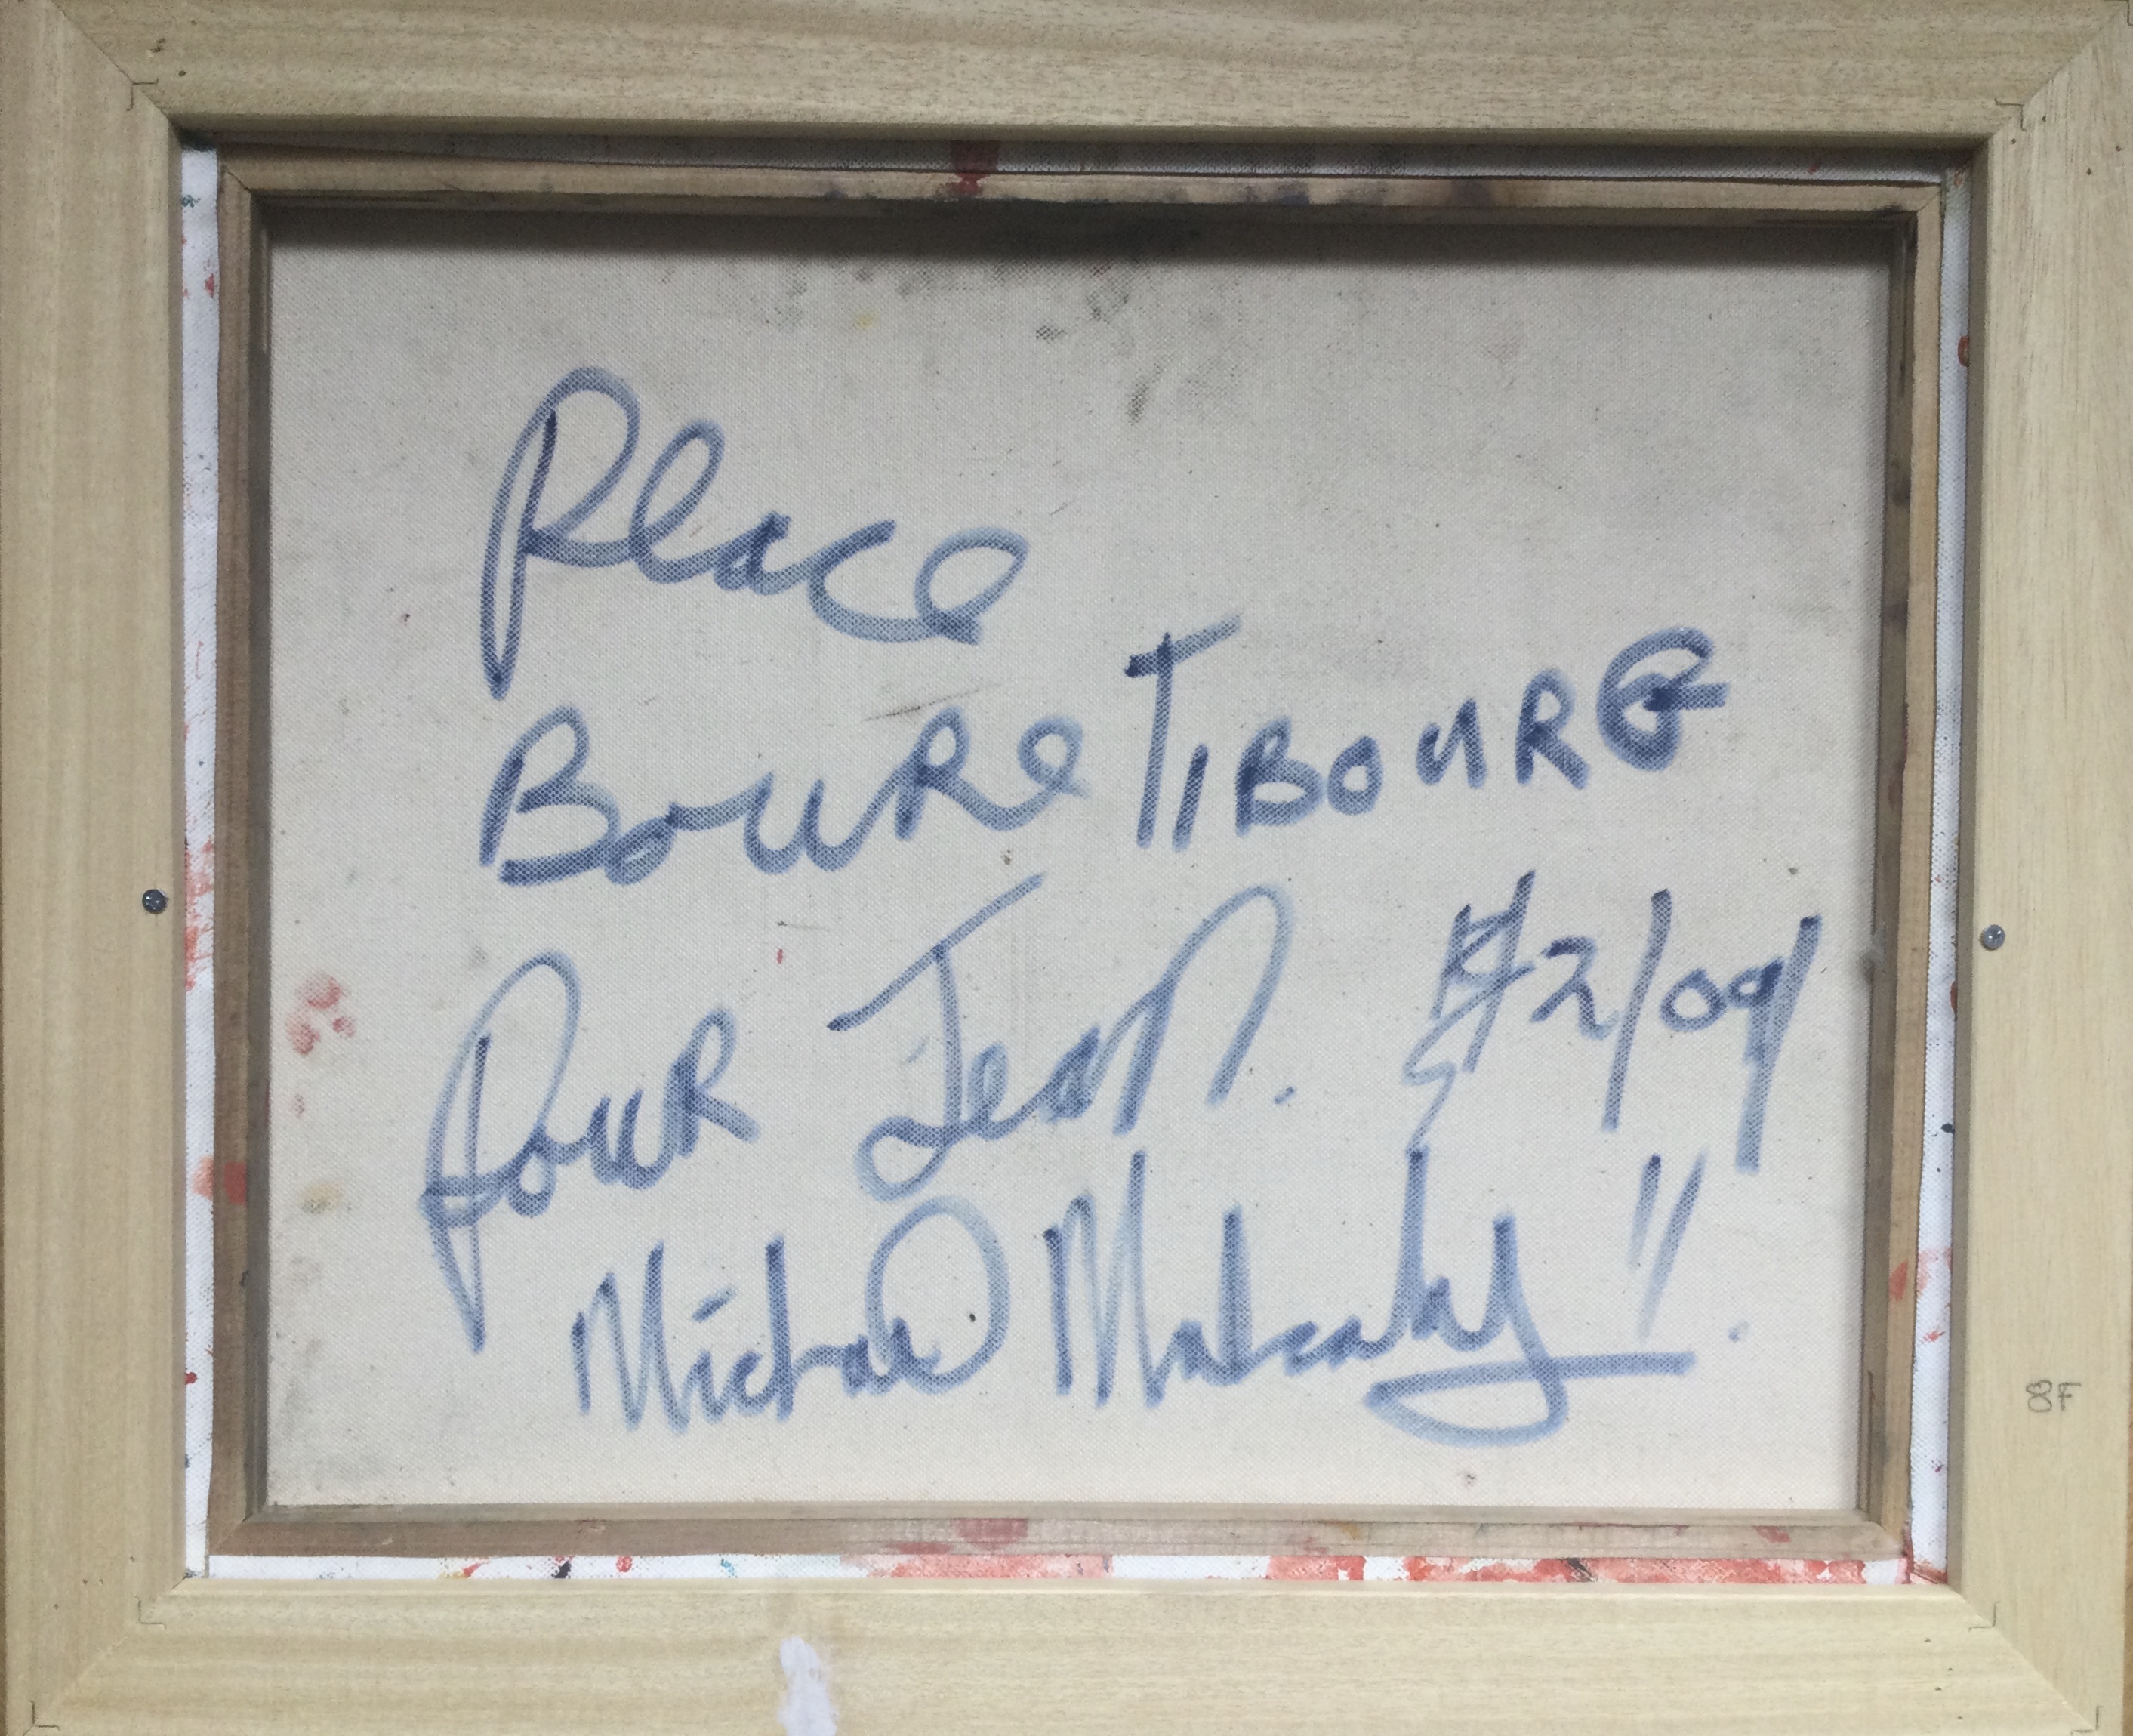 Place
BOURE TIBOURG
POUR Jean.
Michael Mulcahy !!
8F